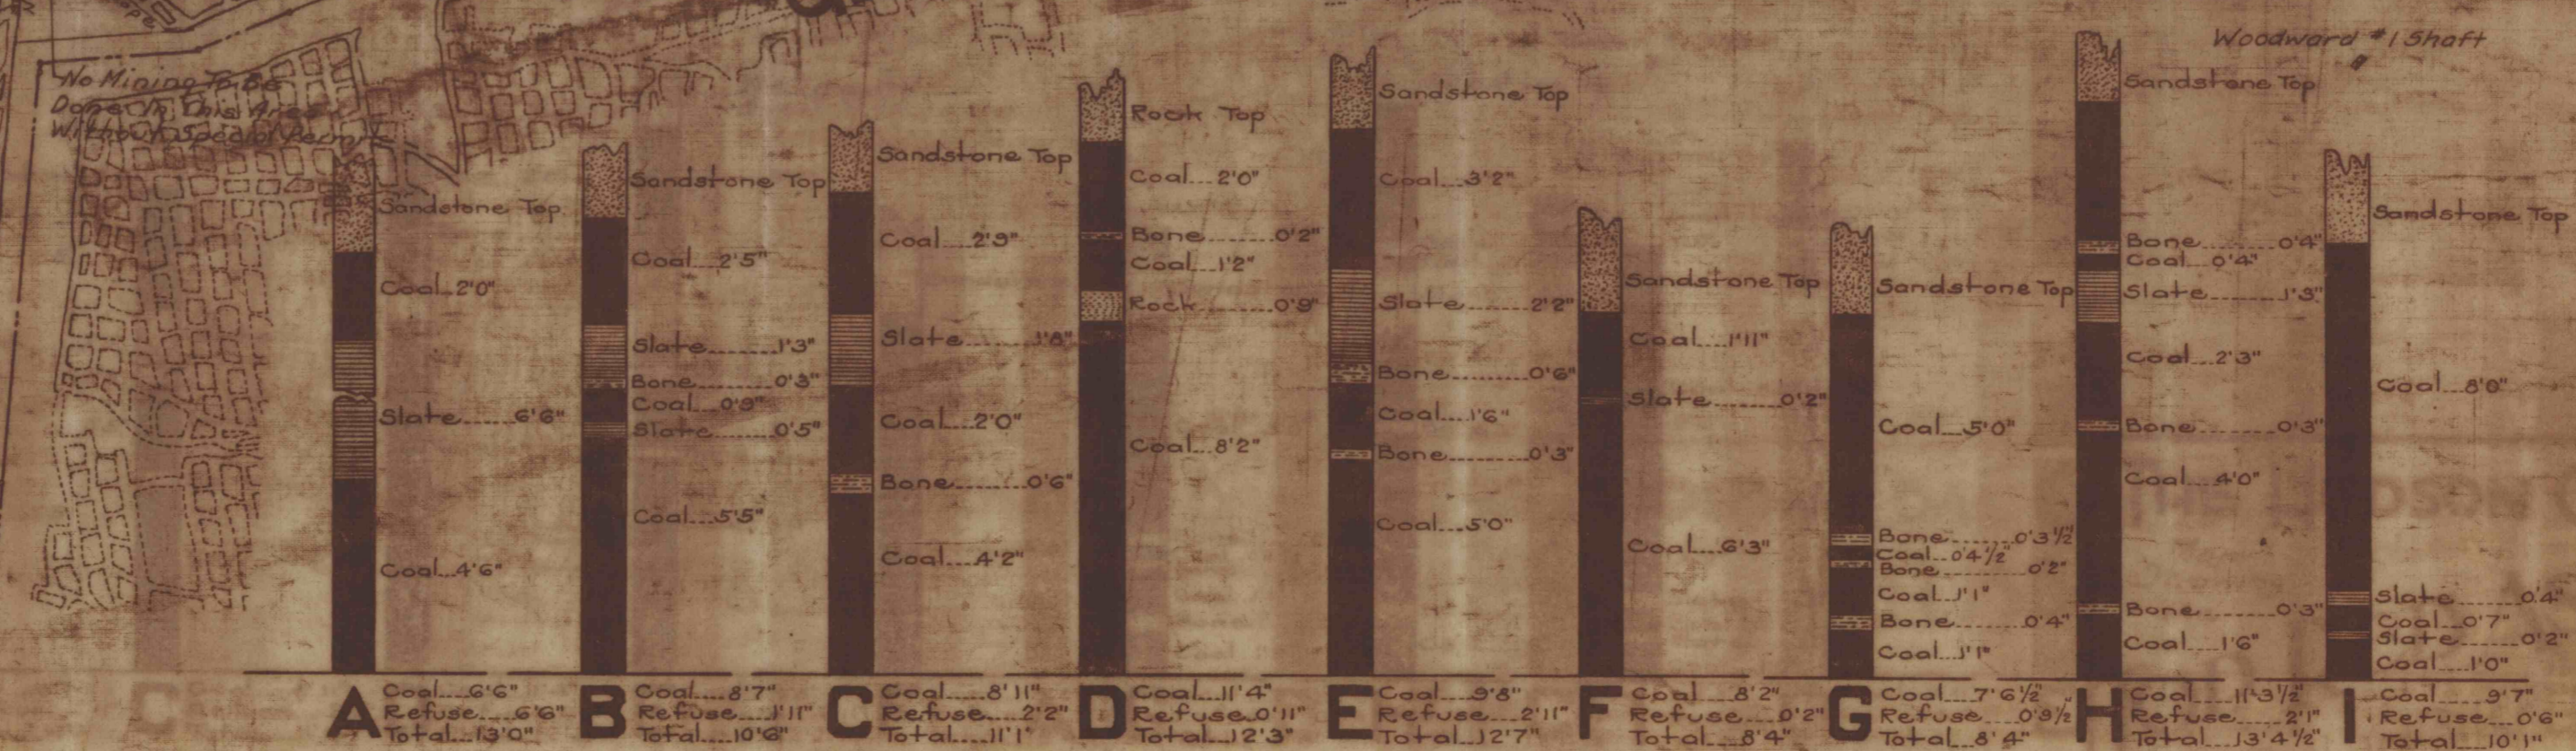 No Mining To Be
Done In This Area
Without Special Permit
Woodward #1 Shaft
Sandstone Top
Coal 2'0"
Slate 6'6"
Coal 4'6"
A
Coal 6'6"
Refuse 6'6"
Total 13'0"
Sandstone Top
Coal 2'5"
Slate 1'3"
Bone 0'3"
Coal 0'9"
Slate 0'5"
Coal 5'5"
B
Coal 8'7"
Refuse 1'11"
Total 10'6"
Sandstone Top
Coal 2'9"
Slate 1'8"
Coal 2'0"
Bone 0'6"
Coal 4'2"
C
Coal 8'11"
Refuse 2'2"
Total 11'1"
Rock Top
Coal 2'0"
Bone 0'2"
Coal 1'2"
Rock 0'9"
Coal 8'2"
D
Coal 11'4"
Refuse 0'11"
Total 12'3"
Sandstone Top
Coal 3'2"
Slate 2'2"
Bone 0'6"
Coal 1'6"
Bone 0'3"
Coal 5'0"
E
Coal 9'8"
Refuse 2'11"
Total 12'7"
Sandstone Top
Coal 1'11"
Slate 0'2"
Coal 6'3"
F
Coal 8'2"
Refuse 0'2"
Total 8'4"
Sandstone Top
Coal 5'0"
Bone 0'3½"
Coal 0'4½"
Bone 0'2"
Coal 1'1"
Bone 0'4"
Coal 1'1"
G
Coal 7'6½"
Refuse 0'9½
Total 8'4"
Sandstone Top
Bone 0'4"
Coal 0'4"
Slate 1'3"
Coal 2'3"
Bone 0'3"
Coal 4'0"
Bone 0'3"
Coal 1'6"
H
Coal 11'3½"
Refuse 2'1"
Total 13'4½"
Samdstone Top
Coal 8'0"
Slate 0'4"
Coal 0'7"
Slate 0'2"
Coal 1'0"
I
Coal 9'7"
Refuse 0'6"
Total 10'1"